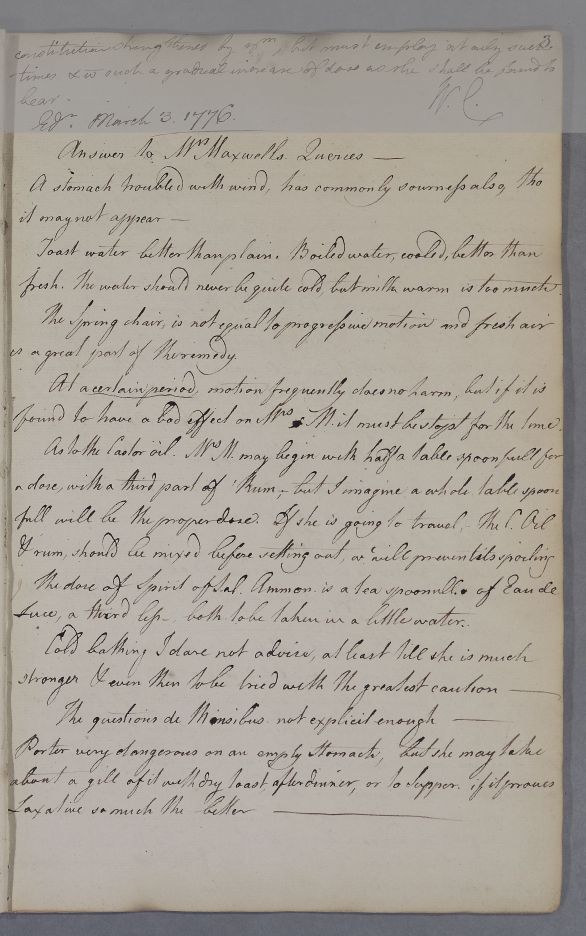 3
constitution strengthened by ym, but must employ it only such
times & in such a gradual increase of dose as she shall be found to
bear.
W. C.
Edr. March 3. 1776.
Answer to Mrs Maxwells Queries —
A stomach troubled with wind, has commonly sourness also, tho
it may not appear —
Toast water better than plain. Boiled water, cooled, better than
fresh. The water should never be quite cold, but milk warm is too much.
The Spring chair, is not equal to progressive motion and fresh air
is a great part of the remedy.
At a certain period, motion frequently does no harm, but if it is
found to have a bad effect on Mrs M. it must be stopt for the time.
As to the Castor oil. Mrs M. may begin with half a table spoonfull for
a dose, with a third part of Rum, – but I imagine a whole table spoon
full will be the proper dose. If she is going to travel, – The C. Oil
& rum, should be mixed before setting out, wc will prevent its spoiling
The dose of Spirit of Sal. Ammon. is a tea spoonfull. of Eau de
Luce, a third less – both to be taken in a little water.
Cold bathing I dare not advise, at least till she is much
stronger & even then to be tried with the greatest caution —
The questions de Mensibus not explicit enough —
Porter very dangerous on an empty stomach, but she may take
about a gill of it with dry toast after dinner, or to Supper. if it proves
Laxative so much the better —